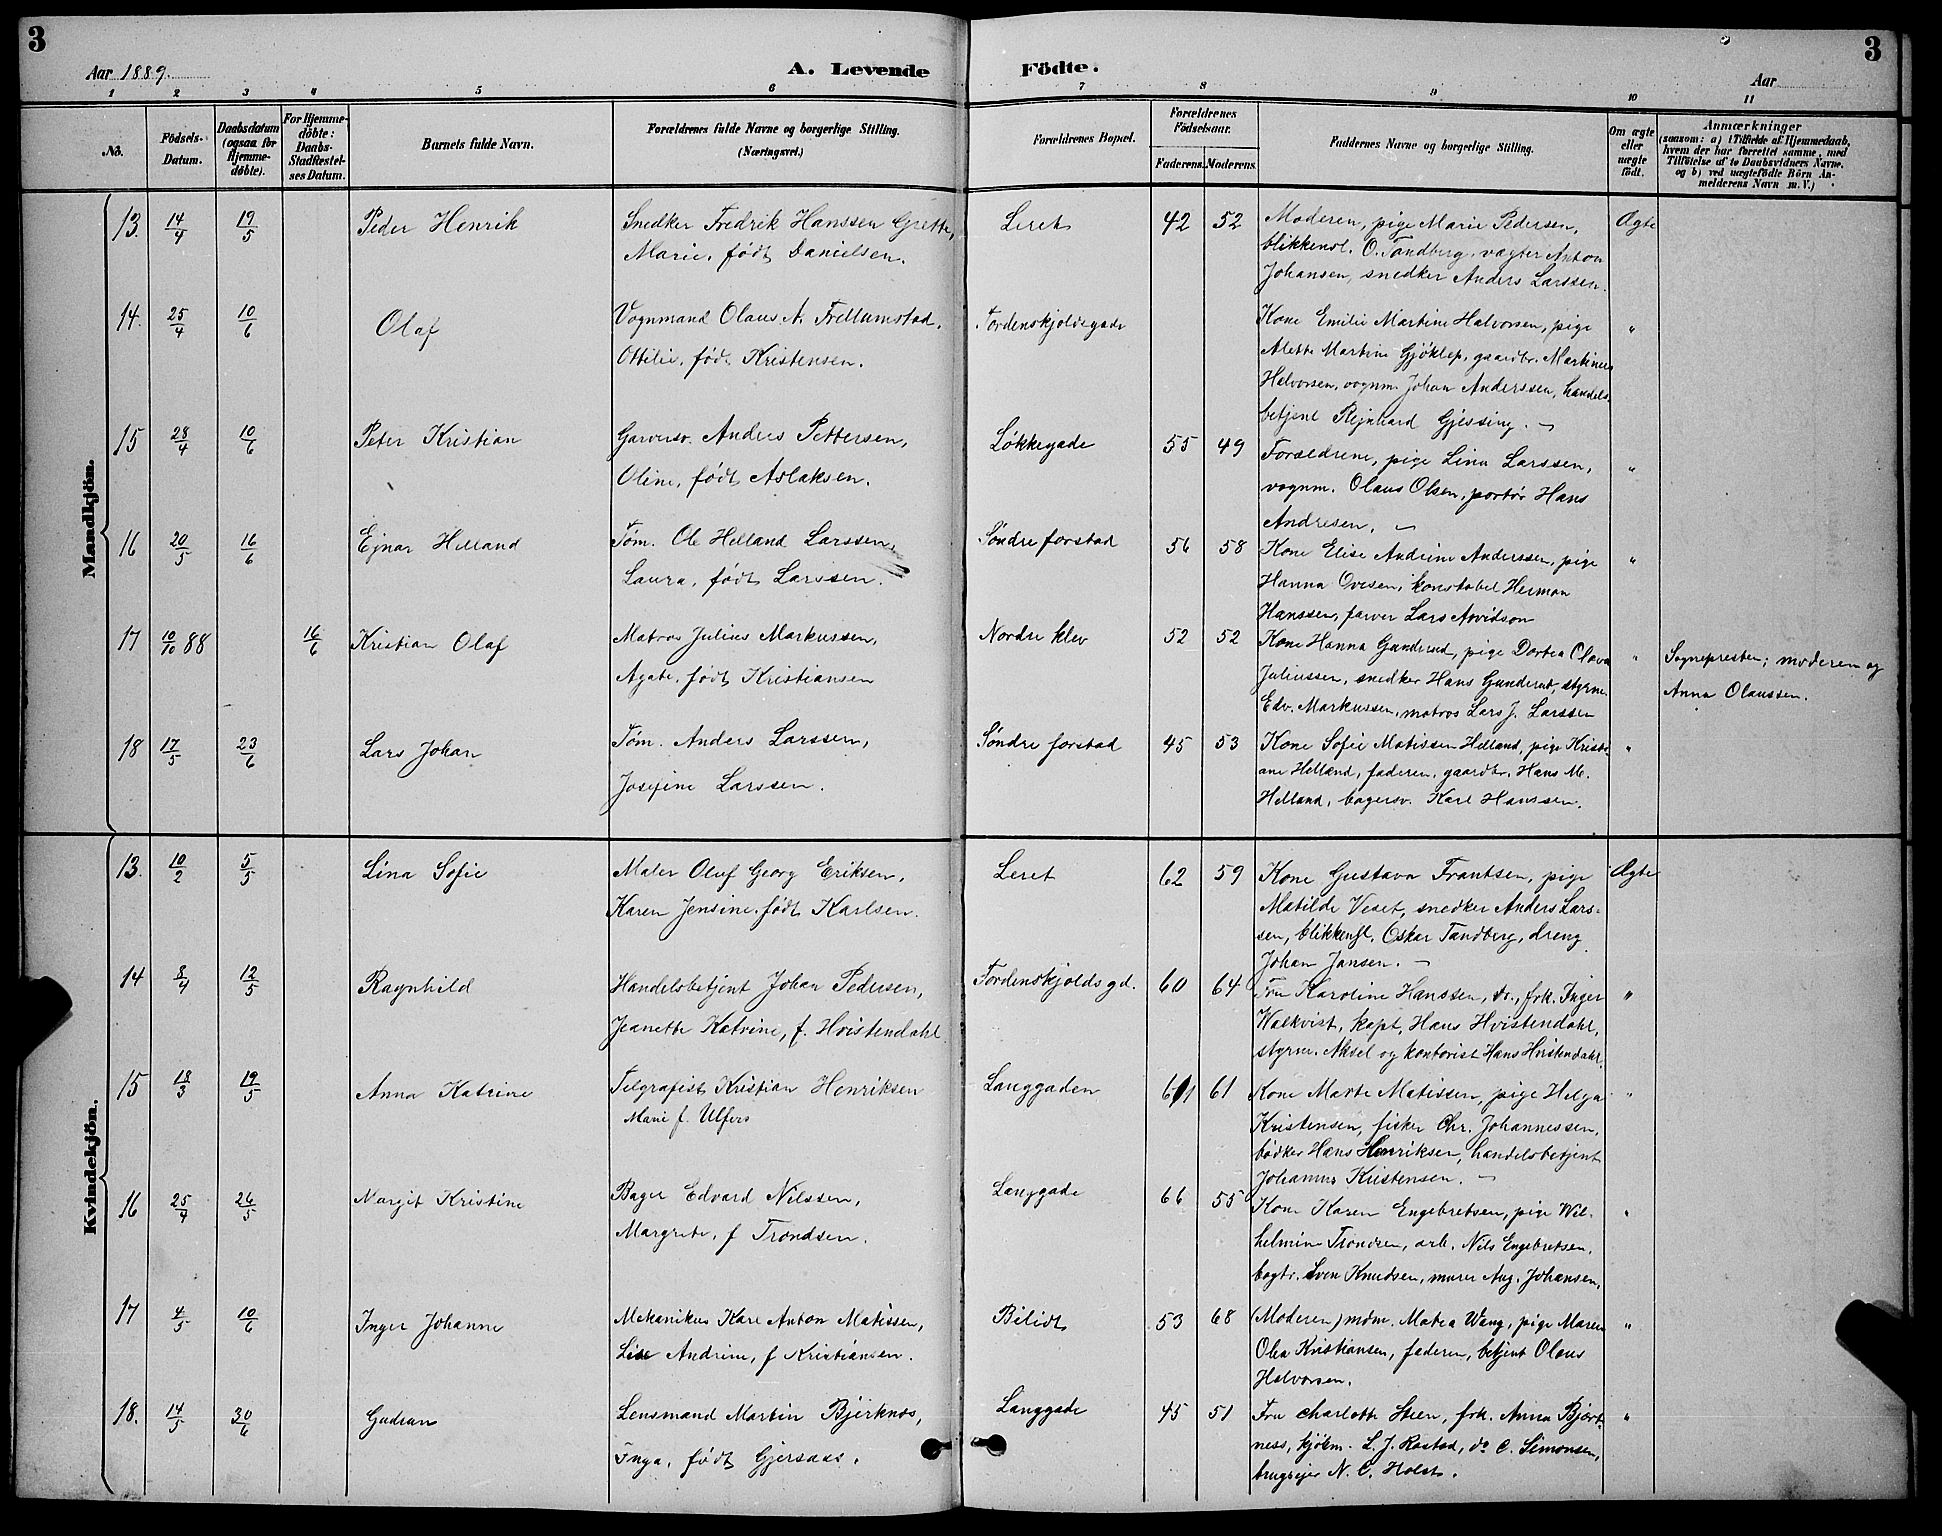 3
Aar 1889.
A. Levende
Födte.
Aar
3
1 2 3 4 5 6 7 8 9 10 11
No.
Födsels-
Datum.
Daabsdatum
(ogsaa for
Hjemme-
döbte).
For Hjemme-
döbte:
Daabs-
Stadfæstel-
ses Datum.
Barnets fulde Navn.
Forældrenes fulde Navne og borgerlige Stilling.
(Næringsvei.)
Forældrenes Bopæl.
Forældrenes
Födselsaar.
Faderens.
Moderens.
Faddernes Navne og borgerlige Stilling.
Om ægte
eller
uægte
födt.
Anmærkninger
(saasom: a) i Tilfælde af Hjemmedaab,
hvem der har forrettet samme, med
Tilföielse af to Daabsvidners Navne,
og b) ved uægtefödte Börn An-
melderens Navn m. V.)
Mandkjön.
13. 14/4 19/5 Peder Henrik
Snedker Fredrik Hanssen Grette,
Marie, født Danielsen.
Leret 42 52
Moderen, pige Marie Pedersen,
blikkensl. O. Tandberg, vægter Anton
Johansen, snedker Anders Larssen.
Ægte
14. 25/4 10/6 Olaf
Vognmand Olaus A. Frellumstad,
Ottilie, født Kristensen.
Tordenskjoldsgade
Kone Emilie Martine Halvorsen, pige
Alette Martine Gjöklep, gaardbr. Martinus
Halvorsen, vognm. Johan Anderssen, handels-
betjent Rejnhard Gjessing. –
"
15 28/4 10/6 Peter Kristian
Garversv. Anders Pettersen,
Oline, født Aslaksen.
Løkkegade 55 49
Forældrene, pige Lina Larssen,
vognm. Olaus Olsen, portør Hans
Andresen. –
"
16 20/5 16/6 Ejnar Helland
Tøm. Ole Helland Larssen,
Laura, født Larssen.
Søndre forstad 56 58
Kone Elise Andrine Anderssen, pige
Hanna Ovesen, konstabel Herman
Hanssen, farver Lars Arvidson
"
17 10/10 88 16/6 Kristian Olaf
Matros Julius Markussen,
Agate, født Kristiansen
Nordre klev 52 52
Kone Hanna Gunderud, pige Dortea Olava
Juliussen, snedker Hans Gunderud, styrm.
Edv. Markussen, matros Lars J. Larssen
"
Sognepresten; moderen og
Anna Olaussen.
18 17/5 23/6 Lars Johan
Tøm. Anders Larssen,
Josefine Larssen.
Søndre forstad 45 53
Kone Sofie Matissen Helland, pige Kristi-
ane Helland, faderen, gaardbr. Hans M.
Helland, bagersv. Karl Hanssen.
"
Kvindekjön.
13. 10/2 5/5 Lina Sofie
Maler Oluf Georg Eriksen,
Karen Jensine, født Karlsen.
Leret 62 59
Kone Gustava Frantsen, pige
Matilde Veset, snedker Anders Lars-
sen, blikkensl. Oskar Tandberg, dreng
Johan Jansen. –
Ægte
14 8/4 12/5 Ragnhild
Handelsbetjent Johan Pedersen,
Jeanette Katrine, f. Hvistendahl
Tordenskjolds gd. 60 64
Fru Karoline Hanssen, do., frk. Inger
Walkvist, kapt. Hans Hvistendahl,
styrm. Aksel og kontorist Hans Hvistendahl.
"
15 18/3 19/5 Anna Katrine
Telgrafist Kristian Henriksen
Marie f. Ulfers
Langgaden 61 61
Kone Marte Matissen, pige Helga
Kristensen, fisker Chr. Johannessen,
bødker Hans Henriksen, handelsbetjent
Johannes Kristensen. –
"
16 25/4 26/5 Margit Kristine
Bager Edvard Nilssen,
Margrete, f Trondsen.
Langgade 66 55
Kone Karen Engebretsen, pige Wil-
helmine Trondsen, arb. Nils Engebretsen,
bogtr. Sven Knudsen, murer Aug. Johansen.
"
17 4/5 10/6 Inger Johanne
Mekanikus Karl Anton Matissen,
Lise Andrine, f Kristiansen.
Bilidt 53 68
(Moderen) mdm. Matea Wang, pige Maren
Olea Kristiansen, faderen, betjent Olaus
Halvorsen.
"
18. 14/5 30/6 Gudrun
Lensmand Martin Bjerknæs,
Inga, født Gjersøes.
Langgade 45 51
Fru Charlotte Steen, frk. Anna Bjerk-
ness, kjøbm. L. J. Rostad, do C. Simonsen,
brugsejer N. C. Holst.
"